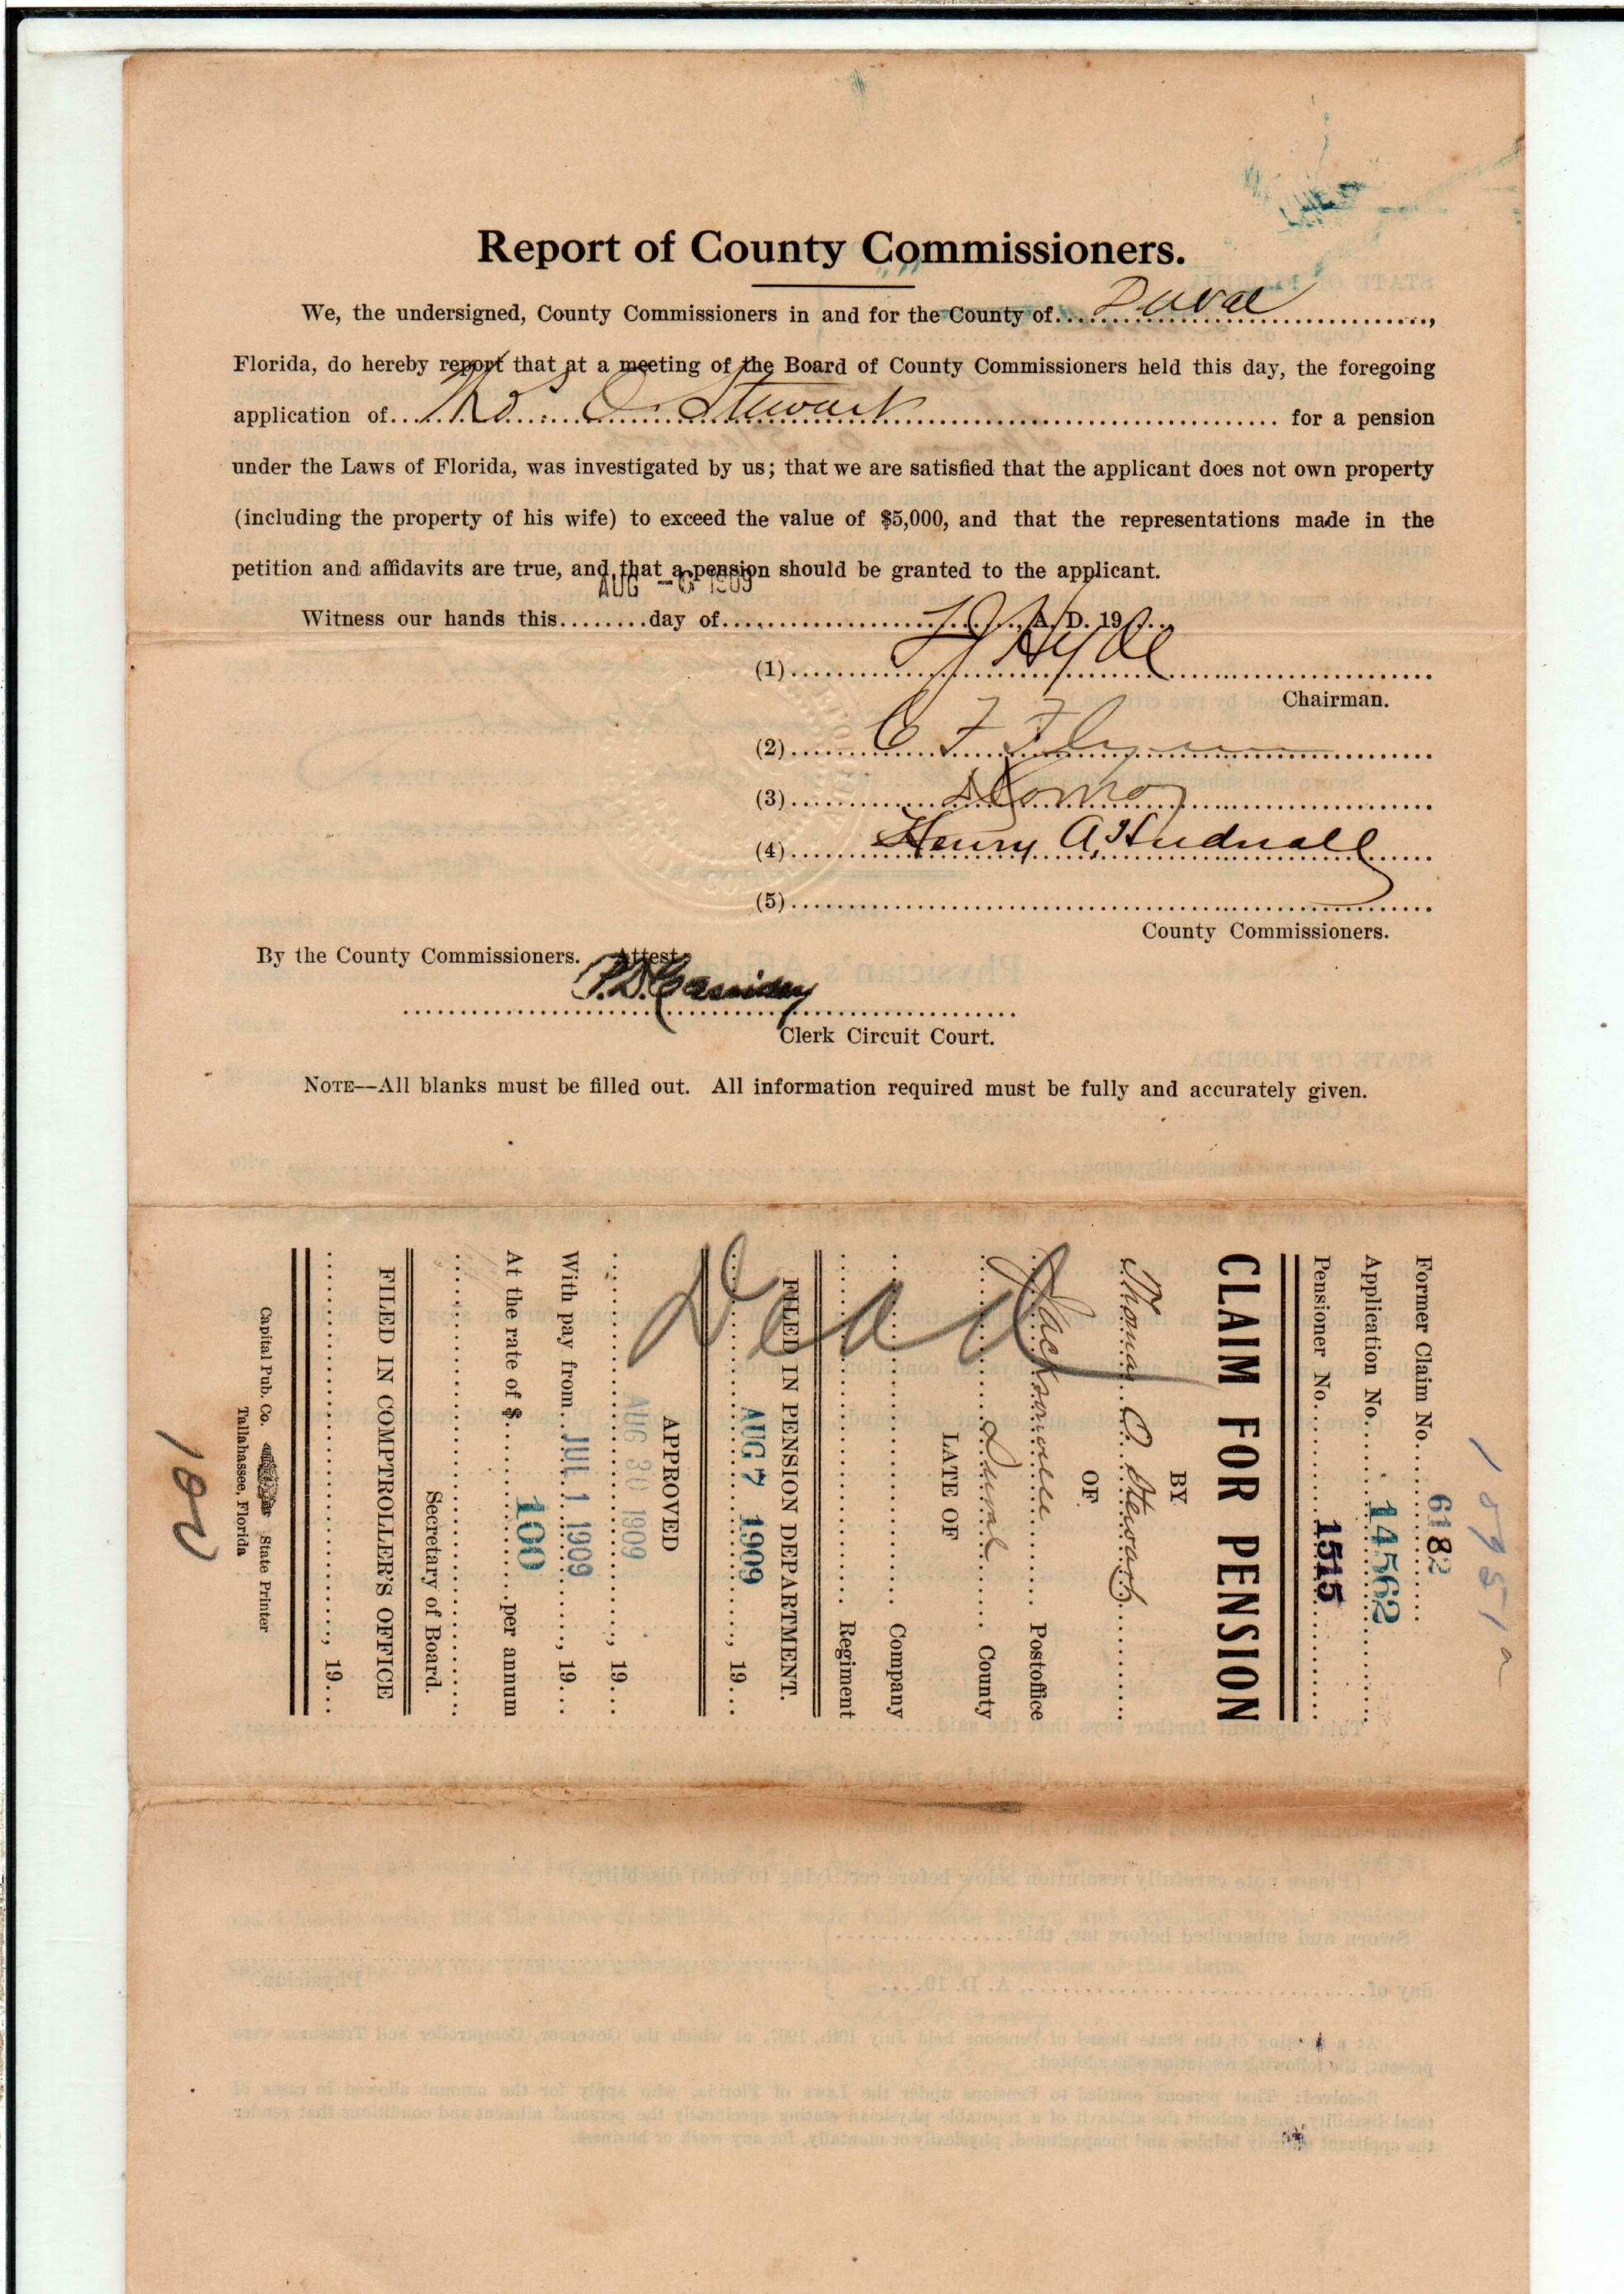 Report of County Commissioners.
We, the undersigned, County Commissioners in and for the County of....Duval....,
Florida, do hereby report that at a meeting of the Board of County Commissioners held this day, the foregoing
application of.... O. Stewart.... for a pension
under the Laws of Florida, was investigated by us; that we are satisfied that the applicant does not own property
(including the property of his wife) to exceed the value of $5,000, and that the representations made in the
petition and affidavits are true, and that a pension should be granted to the applicant.
AUG - 6 1909
Witness our hands this........day of...................., A. D. 190...
(1)....Hyde....
Chairman.
(2)....C F Flynn....
(3)....
(4)....Henry A. Hudnall....
(5)....
County Commissioners.
By the County Commissioners. Attest
P.D. Cassidey
Clerk Circuit Court.
NOTE—All blanks must be filled out. All information required must be fully and accurately given.
Former Claim No....6182....
Application No....14562....
Pensioner No....1515....
CLAIM FOR PENSION
BY
Thomas O. Stewart
OF
Jacksonville.... Postoffice
Duval.... County
LATE OF
.... Company
.... Regiment
Dead
FILED IN PENSION DEPARTMENT.
AUG 7 1909...., 19...
APPROVED
AUG 30 1909...., 19...
With pay from....JUL 1 1909...., 19...
At the rate of $....100....per annum
Secretary of Board.
FILED IN COMPTROLLER'S OFFICE
...., 19...
Capital Pub. Co. State Printer
Tallahassee, Florida